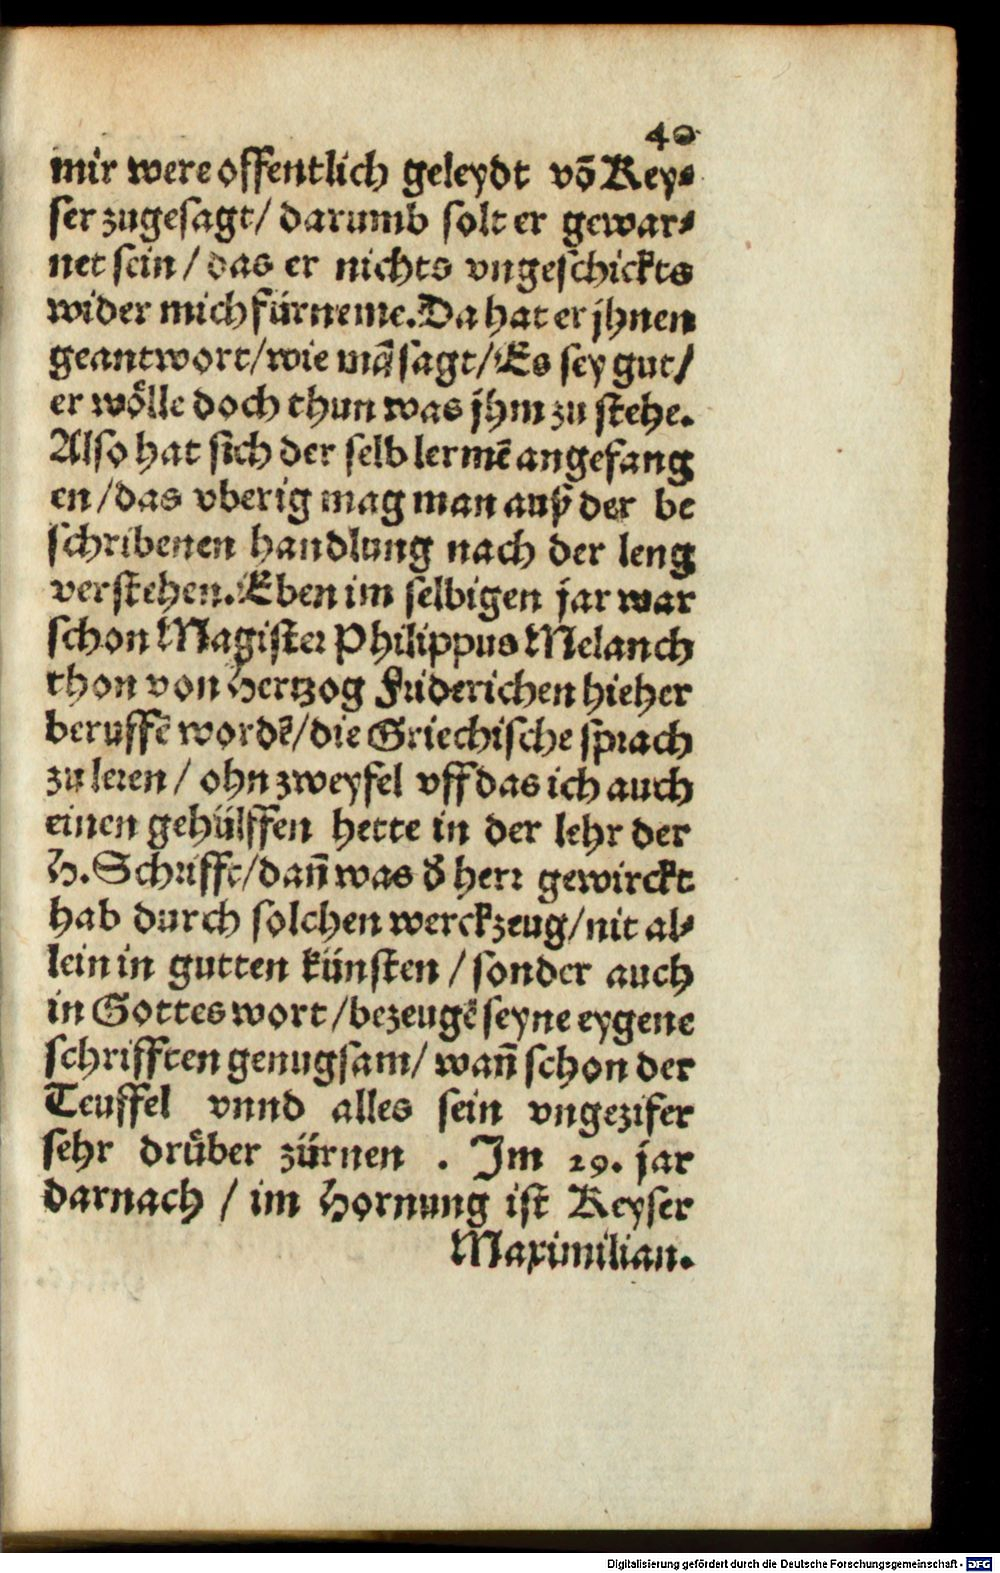 40
mir were offentlich geleydt vō Key⸗
ser zugesagt/ darumb solt er gewar⸗
net sein/ das er nichts vngeschickts
wider mich fürneme. Da hat er jhnen
geantwort/ wie mā sagt/ Es sey gut/
er wölle doch thun was jhm zu stehe.
Also hat sich der selb lermē angefang
en/ das vberig mag man auß der be
schribenen handlung nach der leng
verstehen. Eben im selbigen jar war
schon Magister Philippus Melanch
thon von Hertzog Friderichen hieher
beruffē wordē/ die Griechische sprach
zu leren/ ohn zweyfel vff das ich auch
einen gehülffen hette in der lehr der
H. Schrifft/ dañ was d̕ herr gewirckt
hab durch solchen werckzeug/ nit al⸗
lein in gutten künsten/ sonder auch
in Gottes wort/ bezeugē seyne eygene
schrifften genugsam/ wañ schon der
Teuffel vnnd alles sein vngezifer
sehr drüber zürnen. Im 19. jar
darnach/ im Hornung ist Keyser
Maximilian.
Digitalisierung gefördert durch die Deutsche Forschungsgemeinschaft - DFG